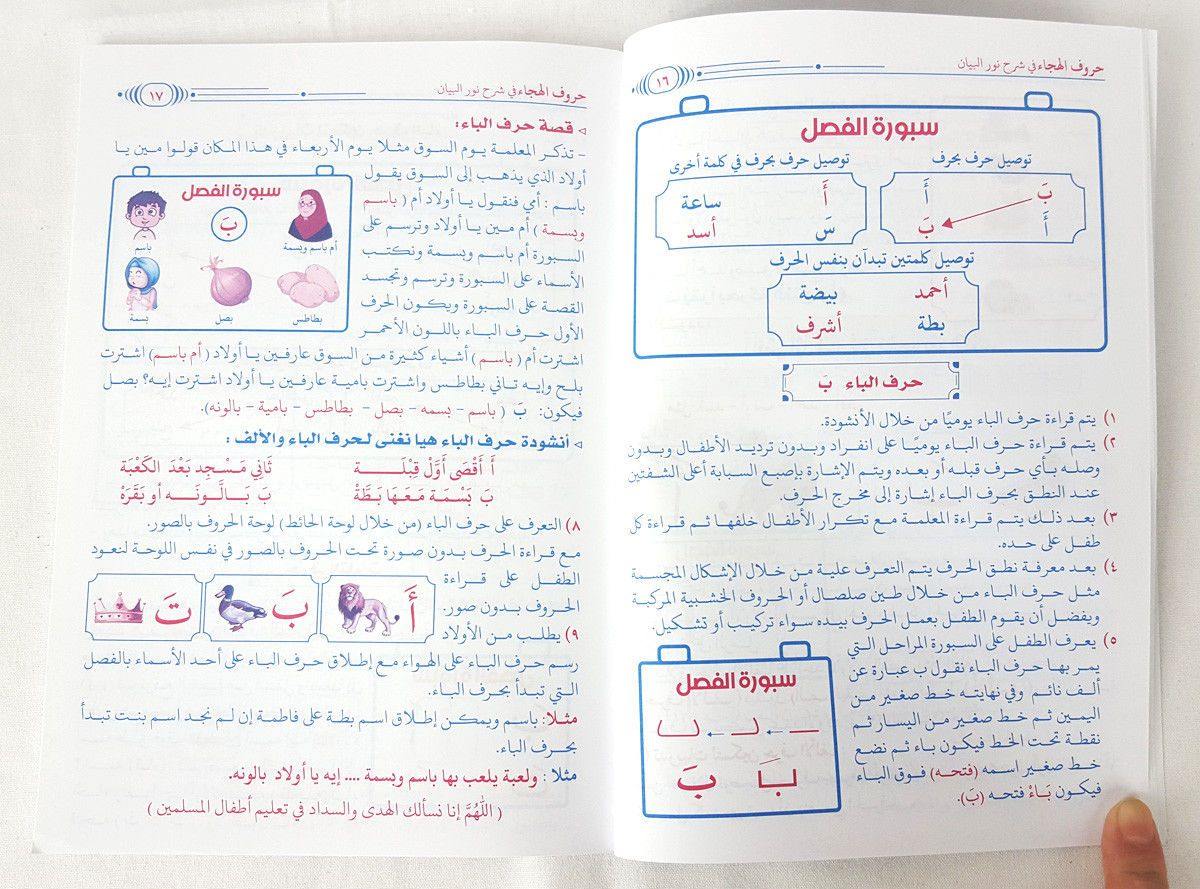 حروف الهجاء في شرح نور البيان
١٦
سبورة الفصل
توصيل حرف بحرف
توصيل حرف بحرف في كلمة أخرى
بَ
أَ
أَ
بَ
أَ
ساعة
سَ
أسد
توصيل كلمتين تبدآن بنفس الحرف
أحمد
بيضة
بطة
أشرف
حرف الباء بَ
١) يتم قراءة حرف الباء يوميًا من خلال الأنشودة.
٢) يتم قراءة حرف الباء يوميًا على انفراد وبدون ترديد الأطفال وبدون
وصله بأي حرف قبله أو بعده ويتم الإشارة بإصبع السبابة أعلى الشفتين
عند النطق بحرف الباء إشارة إلى مخرج الحرف.
٣) بعد ذلك يتم قراءة المعلمة مع تكرار الأطفال خلفها ثم قراءة كل
طفل على حده.
٤) بعد معرفة نطق الحرف يتم التعرف علية من خلال الإشكال المجسمة
مثل حرف الباء من خلال طين صلصال أو الحروف الخشبية المركبة
ويفضل أن يقوم الطفل بعمل الحرف بيده سواء تركيب أو تشكيل.
٥) يعرف الطفل على السبورة المراحل التي
يمر بها حرف الباء نقول ب عبارة عن
ألف نائم وفي نهايته خط صغير من
اليمين ثم خط صغير من اليسار ثم
نقطة تحت الخط فيكون باء ثم نضع
خط صغير اسمه (فتحه) فوق الباء
فيكون بَاءْ فتحه (بَ).
سبورة الفصل
بَ
حروف الهجاء في شرح نور البيان
١٧
قصة حرف الباء:
- تذكر المعلمة يوم السوق مثلا يوم الأربعاء في هذا المكان قولوا مين يا
أولاد الذي يذهب إلى السوق يقول
باسم : أمي فنقول يا أولاد أم (باسم
وبسمة) أم مين يا أولاد وترسم على
السبورة أم باسم وبسمة ونكتب
الأسماء على السبورة وترسم وتجسد
القصة على السبورة ويكون الحرف
الأول حرف الباء باللون الأحمر
سبورة الفصل
بَ
باسم
أم باسم وبسمة
بسمة
بصل
بطاطس
اشترت أم (باسم) أشياء كثيرة من السوق عارفين يا أولاد (أم باسم) اشترت
بلح وإيه تاني بطاطس واشترت بامية عارفين يا أولاد اشترت إيه؟ بصل
فيكون: بَ (باسم - بسمه - بصل - بطاطس - بامية - بالونه).
أنشودة حرف الباء هيا نغنى لحرف الباء والألف :
أَ أَقْصَى أَوَّل قِبْلَـــة ثَانِي مَسْجِد بَعْدَ الكَعْبَة
بَ بَسْمَة مَعَهَا بَطَّةْ بَ بَـالُّونَـــه أو بَقَرَهْ
٨) التعرف على حرف الباء (من خلال لوحة الحائط) لوحة الحروف بالصور.
مع قراءة الحرف بدون صورة تحت الحروف بالصور في نفس اللوحة لنعود
الطفل على قراءة
الحروف بدون صور.
أَ
بَ
تَ
٩) يطلب من الأولاد
رسم حرف الباء على الهواء مع إطلاق حرف الباء على أحد الأسماء بالفصل
التي تبدأ بحرف الباء.
مثلا: باسم ويمكن إطلاق اسم بطة على فاطمة إن لم نجد اسم بنت تبدأ
بحرف الباء.
مثلا : ولعبة يلعب بها باسم وبسمة .... إيه يا أولاد بالونه.
( اللهُمَّ إنا نسألك الهدى والسداد في تعليم أطفال المسلمين )